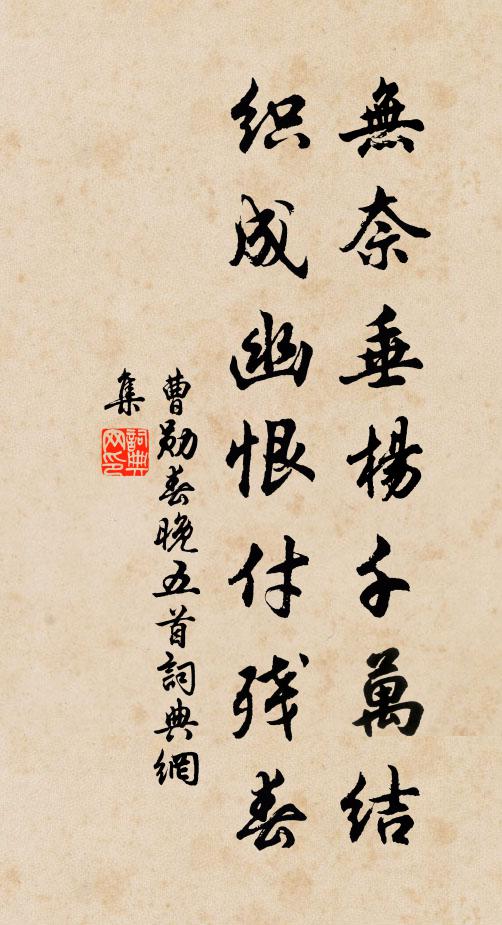 無奈垂楊千萬結
织成幽恨付残春
曹勛春晚五首詞典網
集
詞典
网印